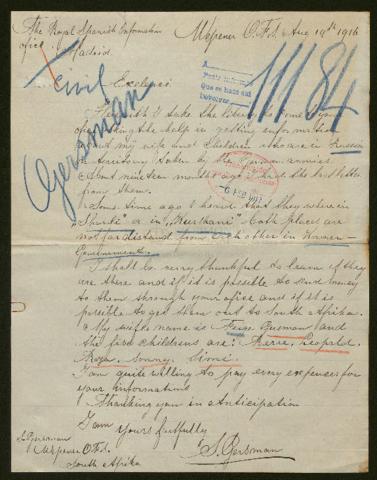 The Royal Spanish Information
ofice
Madrid.
Wepener O.F.S. Aug 19th 1916
Civil
German
11184
Excelenci
Herewith I take the liberty to come
the help in getting information
about my wife and Children who are in Russia
territory taken by the German armies.
About nineteen months ago I had the last letter
from them.
Some time ago I heard that they where in
"Shurli" or in "Meerhani" both places are
not far distand from Each other in Kowner-
Government.
I shall be verry thankful to learn if they
are there and if it is posible to send money
to them through your ofice and if it is
posible to get them out to South Afrika.
My wife's name is Gersman and
the five childrens are: Pherre, Leopold
Sonny, Simi.
I am quite willing to pay eny expences for
your information
Thanking you in Anticipation
I am
yours faithfully
S. Gersman
S. Gersman
Wepener O.F.S.
South Afrika